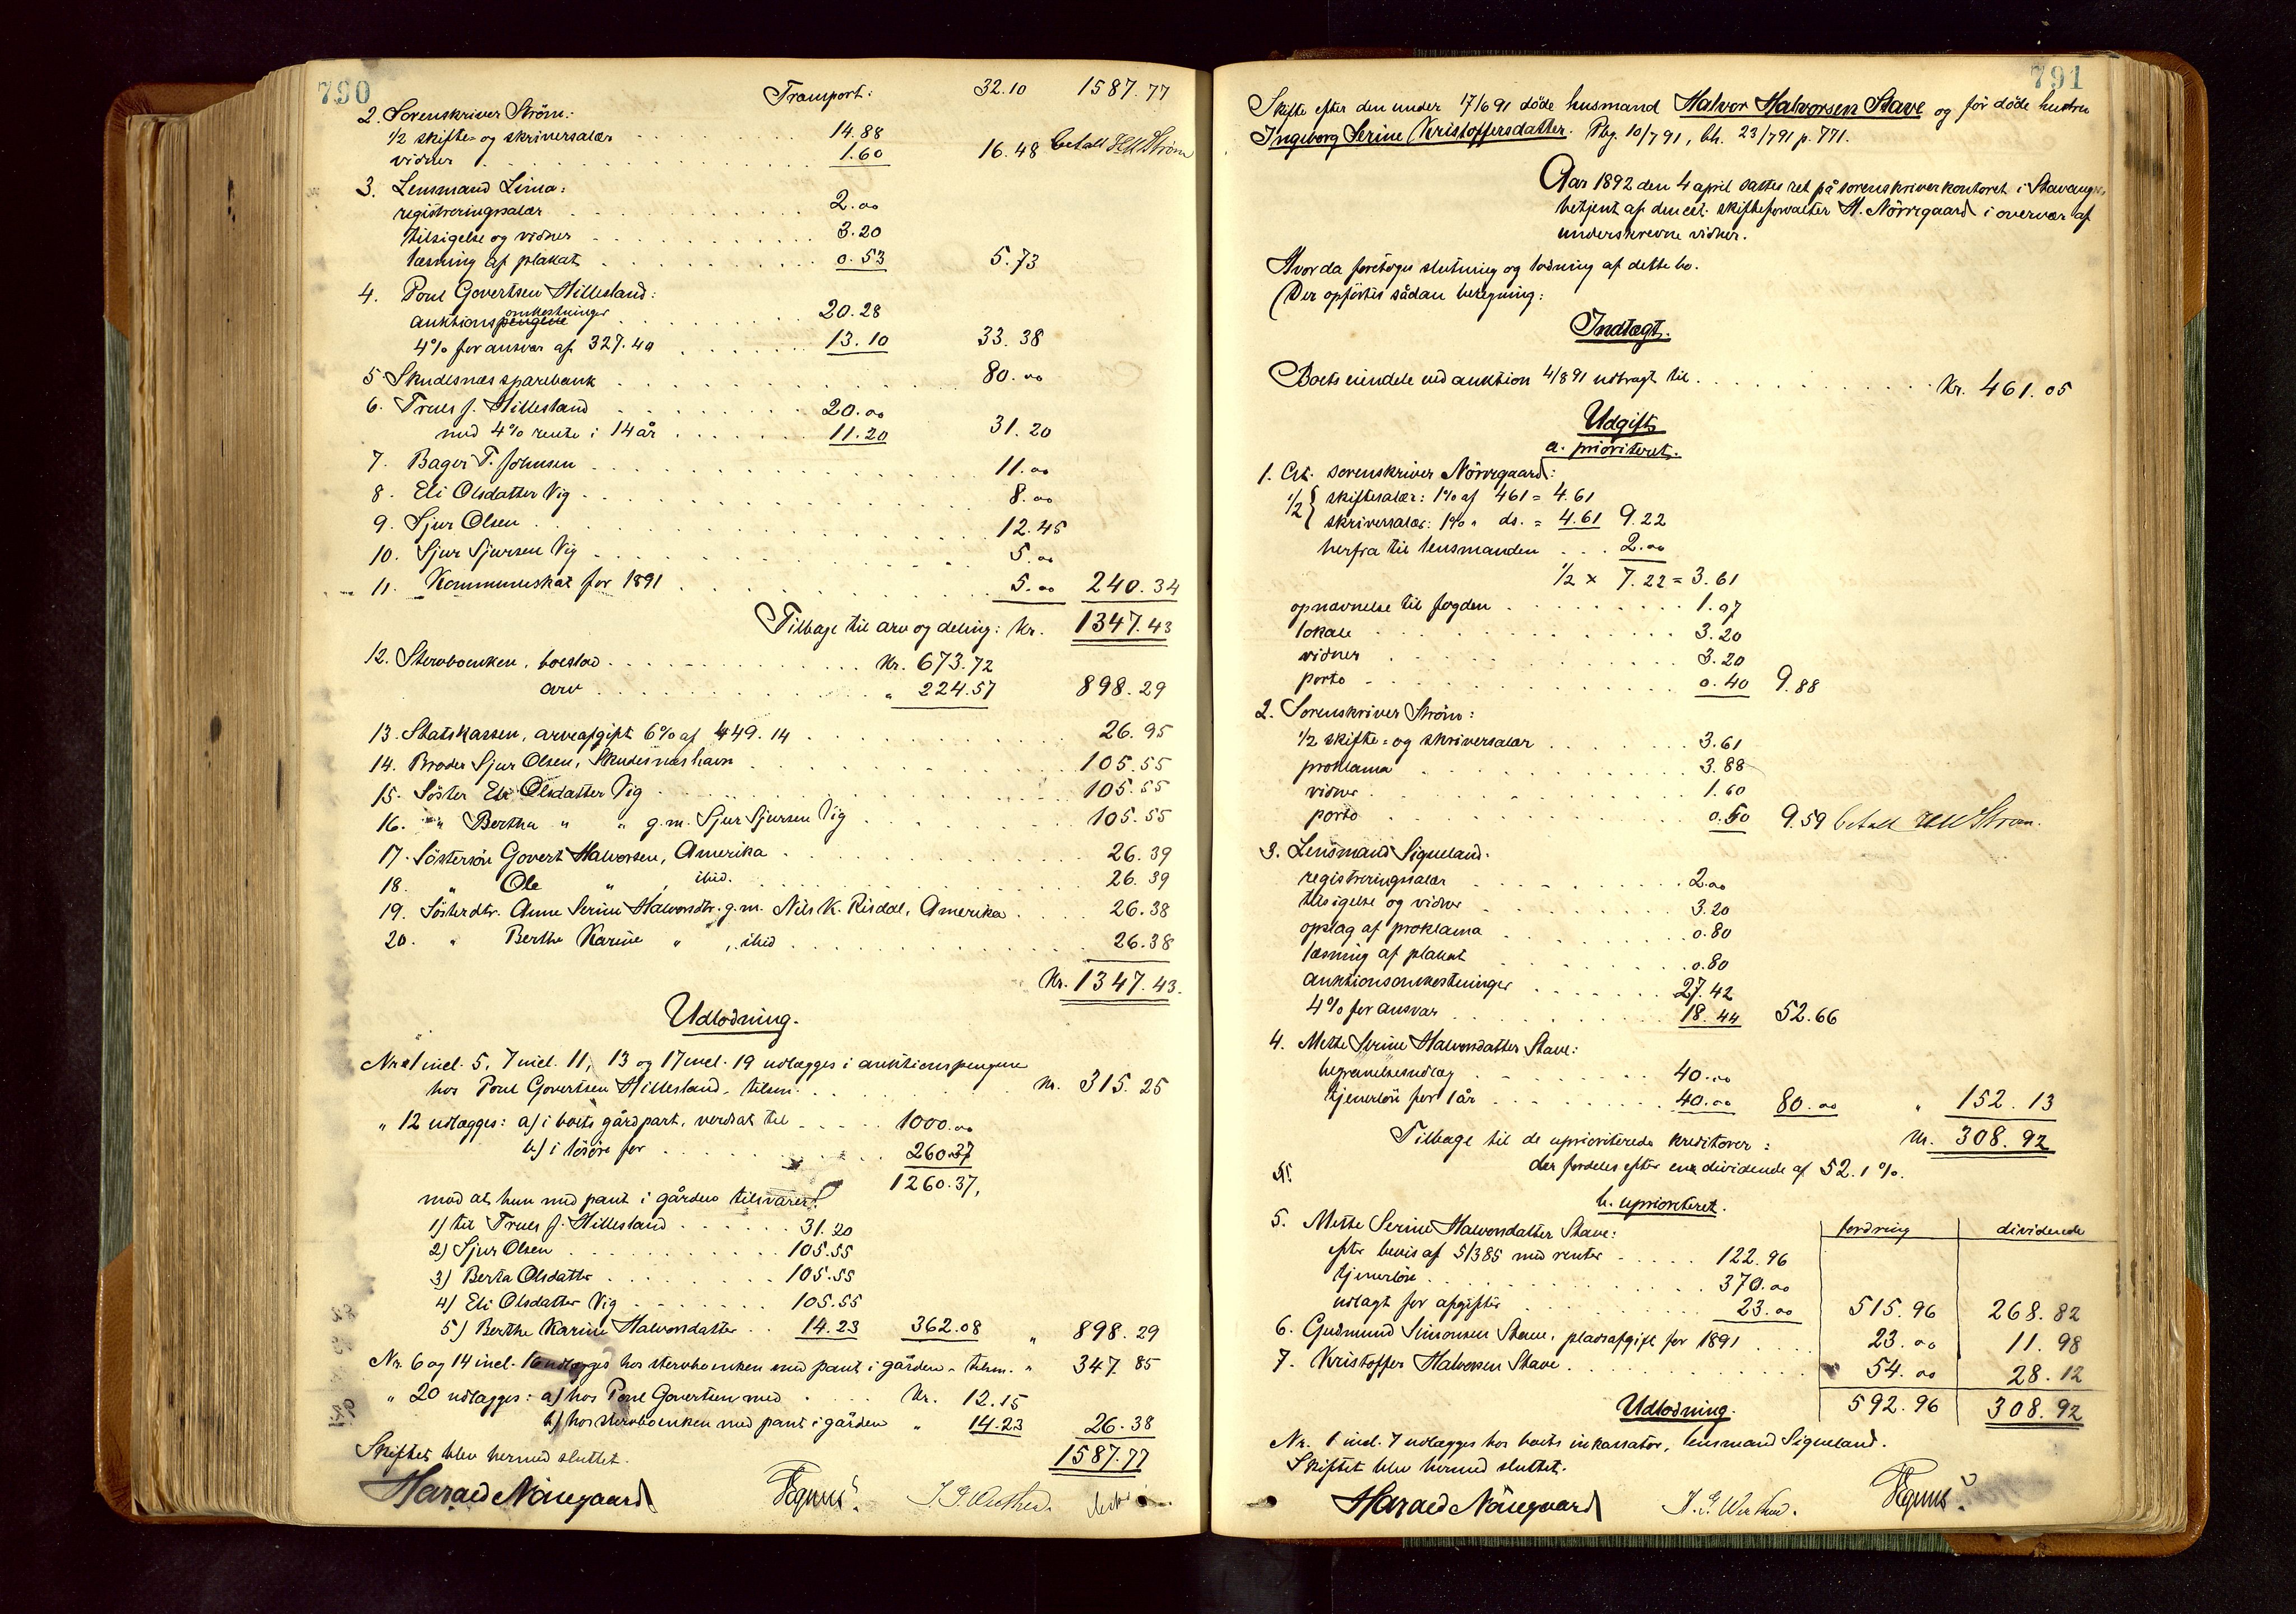 790
Transport: 32.10 1587.77
2. Sorenskriver Ström:
1/2 skifte- og skriversalær . . . 14.88
vidner . . . 1.60 16.48 betalt
3. Lensmand Lima:
registreringssalær . . . 2.00
tilsigelse og vidner . . . 3.20
læsning af plakat . . . 0.53 5.73
4. Poul Govertsen Hillesland:
omkostninger
auktionspengene . . . 20.28
4% for ansvar af 327.40 . . . 13.10 33.38
5. Skudesnæs sparebank . . . 80.00
6. Truls J. Hillesland . . . 20.00
med 4% rente i 14 år . . . 11.20 31.20
7. Bager T. Johnsen . . . 11.00
8. Eli Olsdatter Vig . . . 8.00
9. Sjur Olsen . . . 12.45
10. Sjur Sjursen Vig . . . 5.00
11. Kommuneskat for 1891 . . . 5.00 240.34
Tilbage til arv og deling: Kr. 1347.43
12. Stervboenken, boeslod . . . Kr. 673.72
arv . . . " 224.57 898.29
13. Statskassen, arveafgift 6% af 449.14 . . . 26.95
14. Broder Sjur Olsen, Skudesnæshavn . . . 105.55
15. Söster Eli Olsdatter Vig . . . 105.55
16. " Bertha " " g.m. Sjur Sjursen Vig . . . 105.55
17. Söstersön Govert Halvorsen, Amerika . . . 26.39
18. " Ole " , ibid. . . . 26.39
19. Sösterdtr. Anne Serine Halvorsdtr. g.m. Nils K. Risdal, Amerika . . . 26.38
20. " Berthe Karine " , ibid . . . 26.38
Kr. 1347.43.
Udlodning.
Nr. 1 incl. 5, 7 incl. 11, 13 og 17 incl. 19 udlægges i auktionspengene
hos Poul Govertsen Hillesland, tilsm. . . . Kr. 315.25
" 12 udlægges: a) i boets gårdpart, verdsat til . . . 1000.00
b) i lösöre for . . . 260.37
1260.37,
mod at hun med pant i gården tilsvarer:
1) til Truls J. Hillesland . . . 31.20
2) Sjur Olsen . . . 105.55
3) Berta Olsdatter . . . 105.55
4) Eli Olsdatter Vig . . . 105.55
5) Berthe Karine Halvorsdatter . . 14.23 362.08 " 898.29
Nr. 6 og 14 incl. 16 udlægges hos stervboenken med pant i gården - tilsm. " 347.85
" 20 udlægges: a) hos Poul Govertsen med . . . Kr. 12.15
b) hos stervboenken med pant i gården " 14.23 26.38
Skiftet blev hermed sluttet. 1587.77
Harald Nörregaard
791
Skifte efter den under 17/6 91 döde husmand Halvor Halvorsen Stave og för döde hustru
Ingeborg Serine Kristoffersdatter. Pbg. 10/7 91, bh. 23/7 91 p. 771.
Aar 1892 den 4 april sattes ret på sorenskriverkontoret i Stavanger
betjent af den cst. skifteforvalter H. Nörregaard i overvær af
underskrevne vidner.
Hvor da foretoges slutning og lodning af dette bo.
Der opförtes sådan beregning:
Indtægt.
Boets eiendele ved auktion 4/8 91 udbragt til . . . Kr. 461.05
Udgift
a. prioriteret.
1. Cst. sorenskriver Nörregaard:
1/2 { skiftesalær: 1% af 461 = 4.61
skriversalær: 1% " ds. = 4.61 9.22
herfra til lensmanden . . . 2.00
1/2 x 7.22 = 3.61
opnævnelse til fogden . . . 1.07
lokale . . . 3.20
vidner . . . 3.20
porto . . . 0.40 9.88
2. Sorenskriver Ström:
1/2 skifte- og skriversalær . . . 3.61
proklama . . . 3.88
vidner . . . 1.60
porto . . . 0.50 9.59 betalt
3. Lensmand Sigveland.
registreringssalær . . . 2.00
tilsigelse og vidner . . . 3.20
opslag af proklama . . . 0.80
læsning af plakat . . . 0.80
auktionsomkostninger . . . 27.42
4% for ansvar . . . 18.44 52.66
4. Mette Serine Halvorsdatter Stave:
begravelsesudlæg . . . 40.00
tjenerlön for 1 år . . . 40.00 80.00 " 152.13
Tilbage til de uprioriterede kreditorer: Kr. 308.92
der fordeles efter en dividende af 52.1%.
b. uprioriteret.
fordring dividende
5. Mette Serine Halvorsdatter Stave:
efter bevis af 5/3 85 med renter . . . 122.96
tjenerlön . . . 370.00
udlagt for afgifter . . . 23.00 515.96 268.82
6. Gudmund Simonsen Stave, pladsafgift for 1891 . . . 23.00 11.98
7. Kristoffer Halvorsen Stave . . . 54.00 28.12
592.96 308.92
Udlodning.
Nr. 1 incl. 7 udlægges hos boets inkassator, lensmand Sigveland.
Skiftet blev hermed sluttet.
Harald Nörregaard